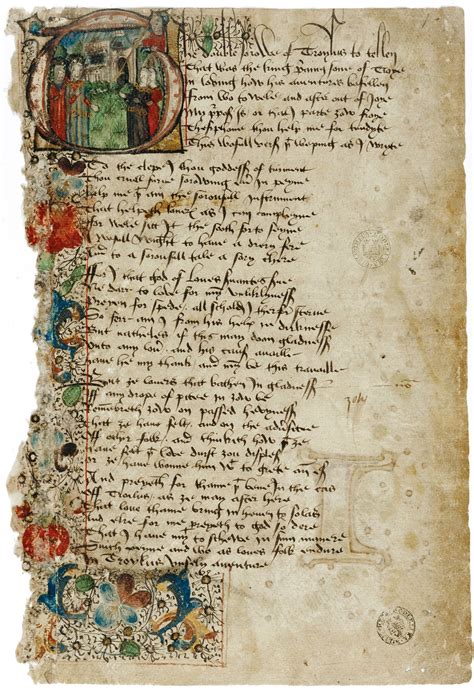 he double sorowe of Troylus to tellen
That was the king Priamus sone of Troye
In loving how his auentures befellen
From wo to wele and after out of Ioye
My purpos is or that I parte ȝow froye
Thesiphone thou help me for tendyte
This wofull vers yt weping as I wryte
To the clepe I thou goddess of turment
Thou cruel furie sorowing euir in peyne
help me yt am the sorowfull Instrument
That helpith louers as I can compleyne
For wele sitt It the soth for to seyne
A wofull wight to haue a drery fere
And to a sorowfull tale a sory chere
For I that god of loues seruantes serue
Ne dar to loue for myn vnliklyness
Preyen for spede all schold I therfor sterue
So fer am I from his help in dirkness
But natheles if this may doon gladness
Vnto any louer and his cause auaille
haue he my thank and myn be this trauaille
But ȝe louers that bathen in gladness
If any drope of pitee in ȝow be
Remembreth ȝow on passed hevyness
That ȝe haue felt and on the aduersitee
Of other folk and thinketh how yt ȝe
haue felt yt loue durst ȝou displese
Or ȝe haue wonne him with to grete an ese
And preyeth for thame yt bene in the cas
Of Troilus as ȝe may after here
That loue thame bring in hevin to solas
And eke for me preyeth to god so dere
That I haue my to schewe in sum manere
Suich peyne and wo as loues folk endure
In Troilus vnsely auenture